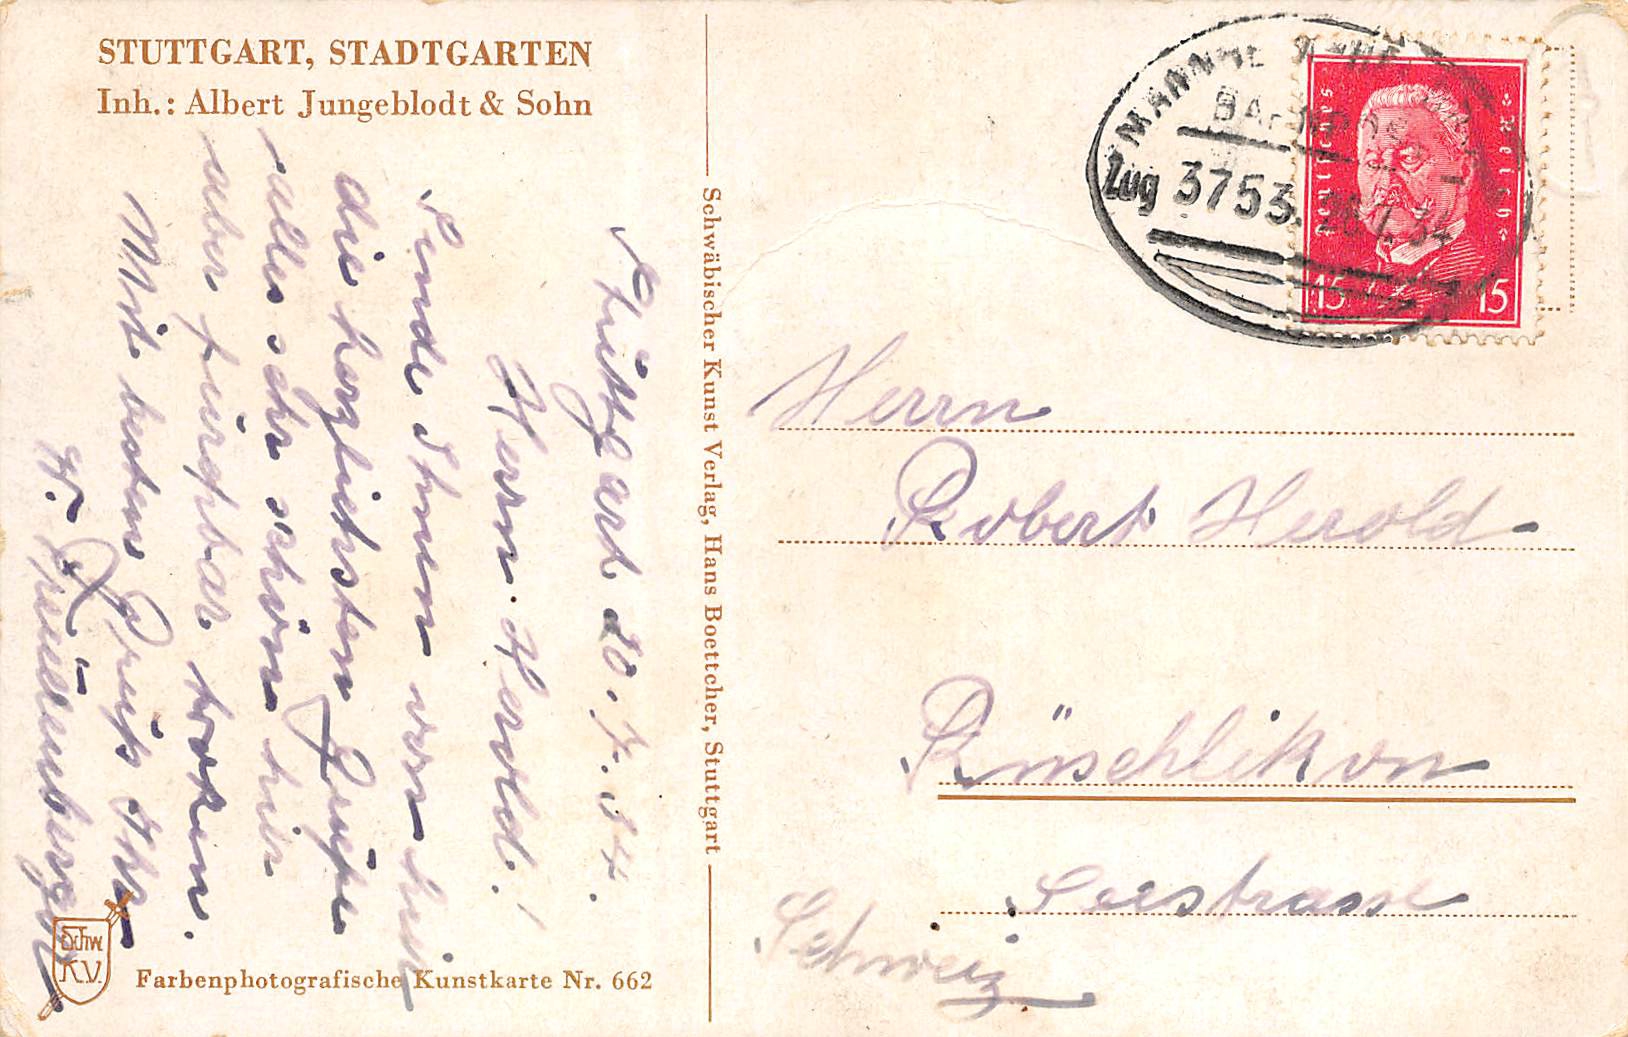 STUTTGART, STADTGARTEN
Inh.: Albert Jungeblodt & Sohn
Stuttgart 20.7.34.
Herrn. Herold!
Sende Ihnen von hier
die herzlichsten Grüße
alles sehr schön hier
aber furchbar troken.
Mit besten Gruß Ihr
W.
Schw.
K.V.
Farbenphotografische Kunstkarte Nr. 662
Schwäbischer Kunst Verlag, Hans Boettcher, Stuttgart
BAHNPOST
Zug 3753
Deutsches Reich
15 15
Herrn
Robert Herold
Rüschlikon
Seestrasse
Schweiz